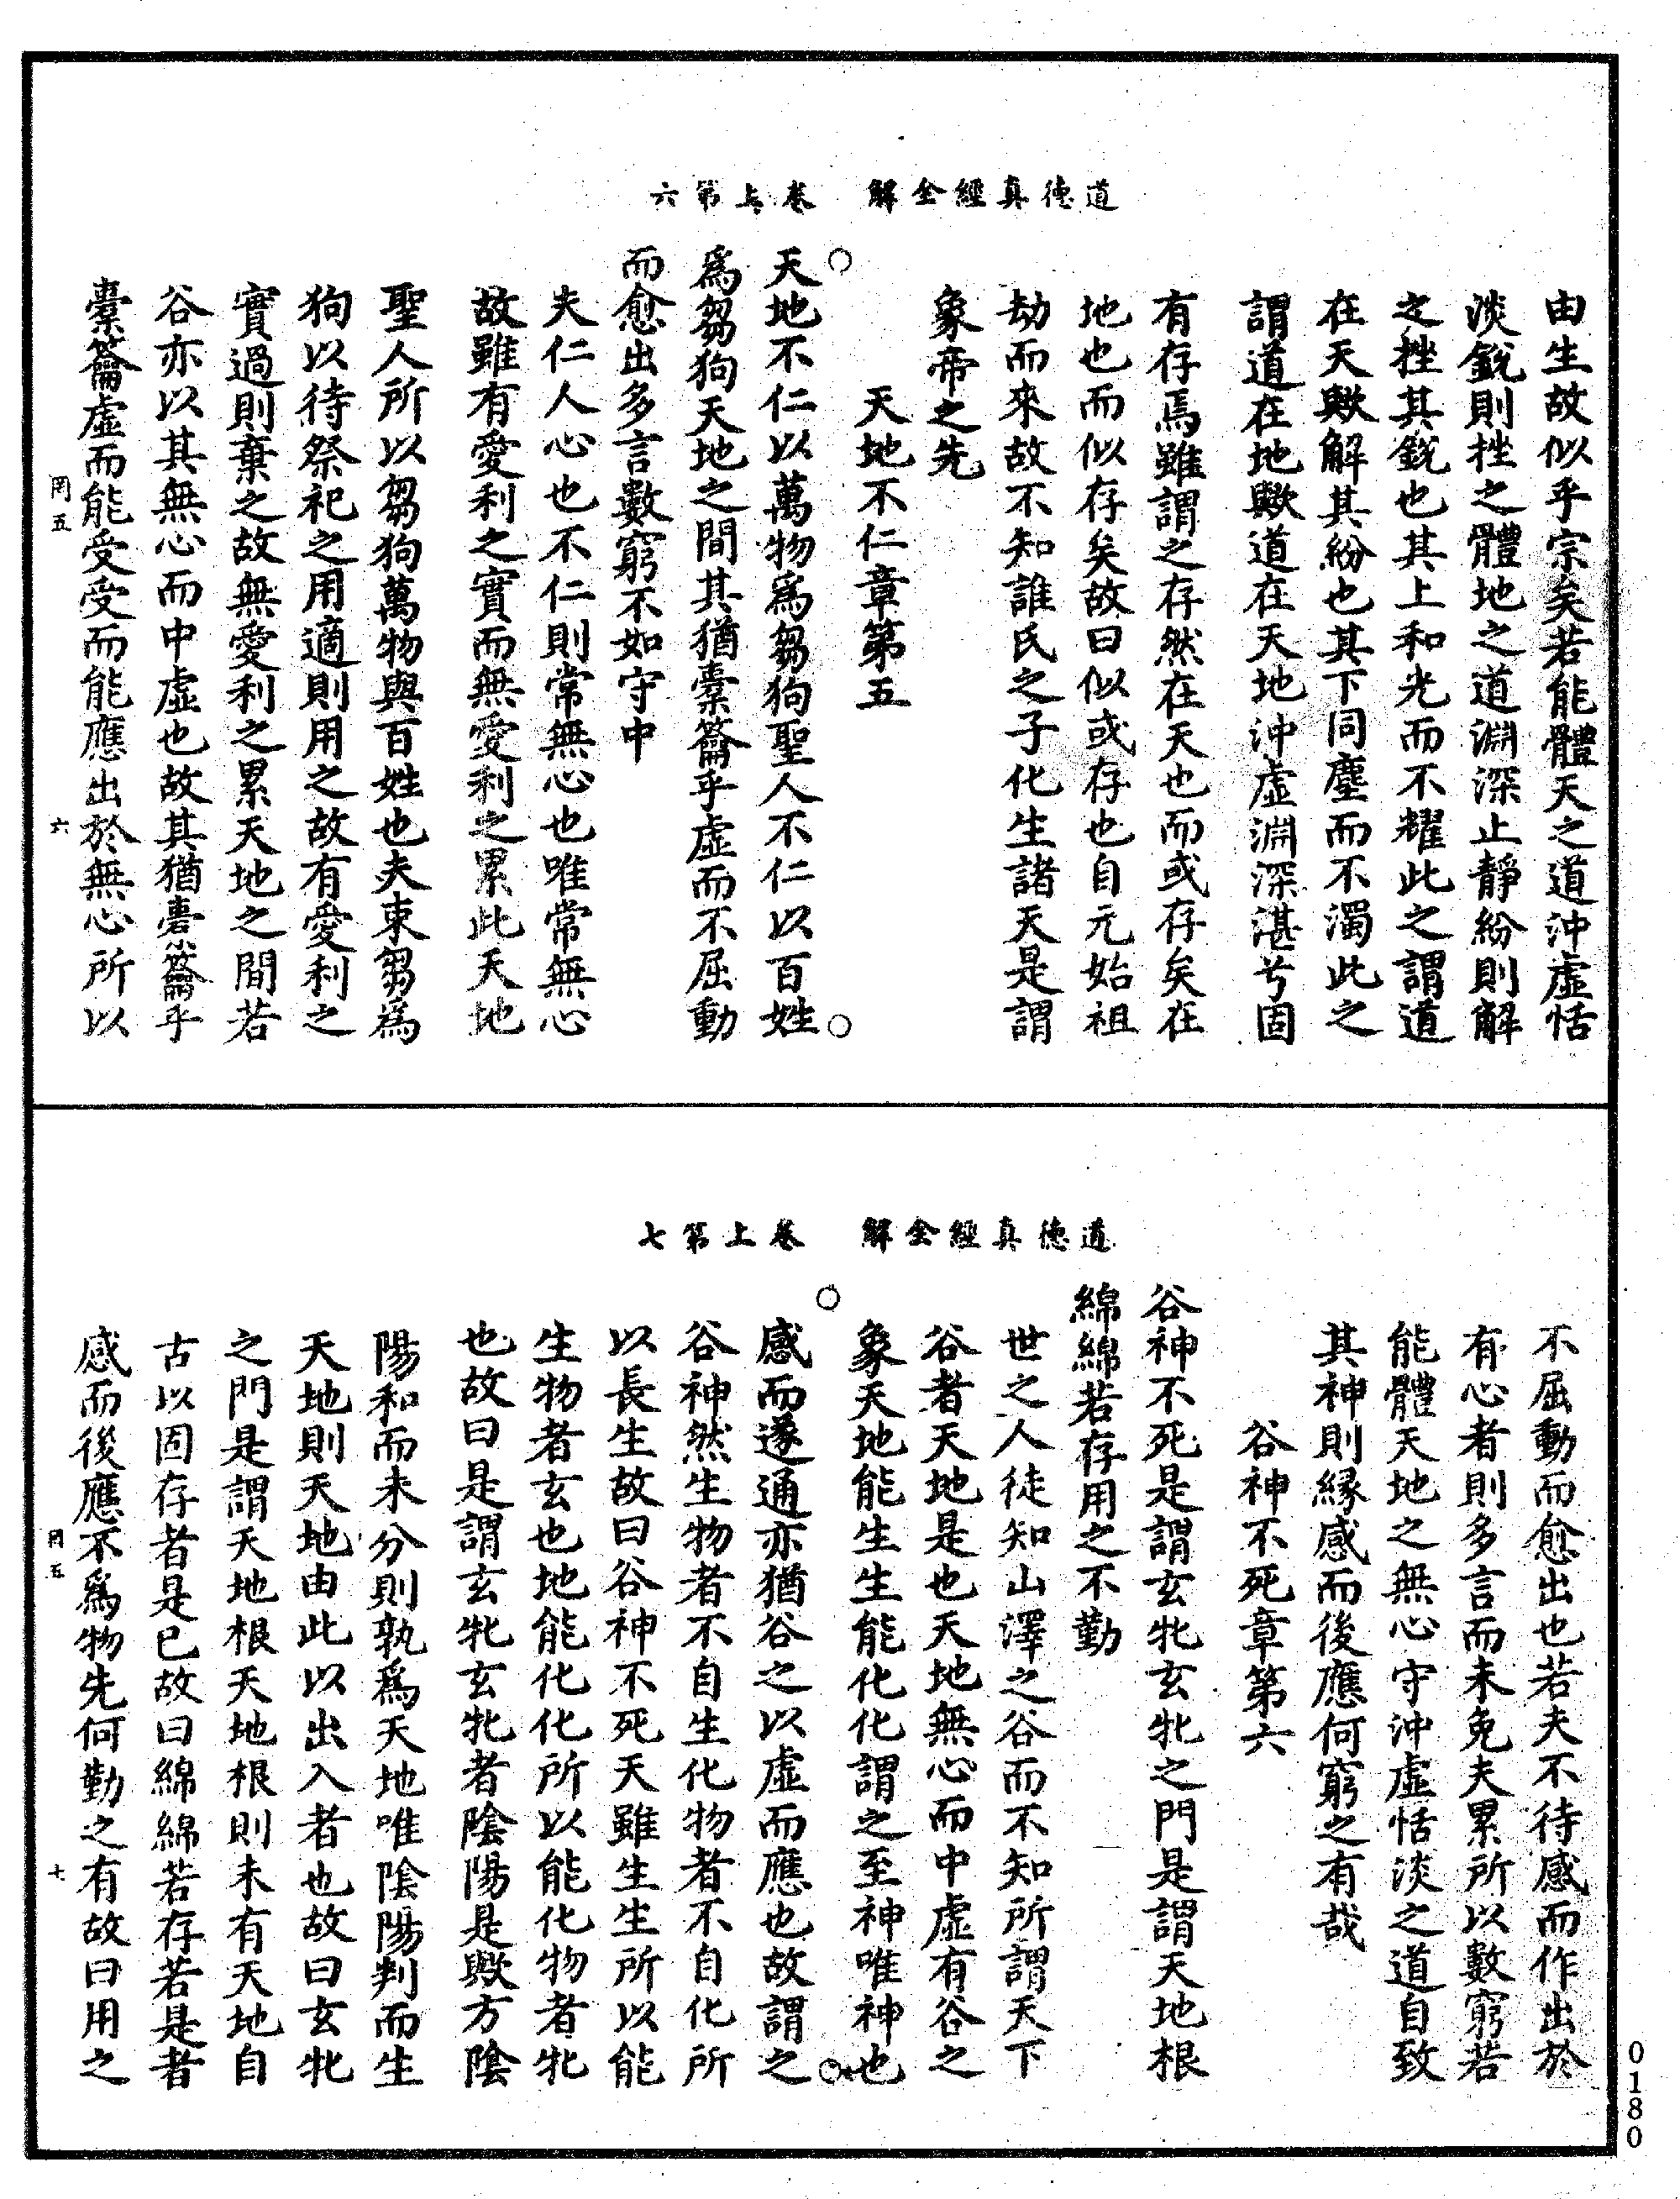 道德真經全解　卷上第六
由生故似乎宗矣若能體天之道沖虛恬
淡銳則挫之體地之道淵深止靜紛則解
之挫其銳也其上和光而不耀此之謂道
在天歟解其紛也其下同塵而不濁此之
謂道在地歟道在天地沖虛淵深湛兮固
有存焉雖謂之存然在天也而或存矣在
地也而似存矣故曰似或存也自元始祖
劫而來故不知誰氏之子化生諸天是謂
象帝之先
天地不仁章第五
天地不仁以萬物為芻狗聖人不仁以百姓
為芻狗天地之間其猶橐籥乎虛而不屈動
而愈出多言數窮不如守中
夫仁人心也不仁則常無心也唯常無心
故雖有愛利之實而無愛利之累此天地
聖人所以芻狗萬物與百姓也夫束芻為
狗以待祭祀之用適則用之故有愛利之
實過則棄之故無愛利之累天地之間若
谷亦以其無心而中虛也故其猶橐籥乎
橐籥虛而能受受而能應出於無心所以
罔五　六
道德真經全解　卷上第七
不屈動而愈出也若夫不待感而作出於
有心者則多言而未免夫累所以數窮若
能體天地之無心守沖虛恬淡之道自致
其神則緣感而後應何窮之有哉
谷神不死章第六
谷神不死是謂玄牝玄牝之門是謂天地根
綿綿若存用之不勤
世之人徒知山澤之谷而不知所謂天下
谷者天地是也天地無心而中虛有谷之
象天地能生生能化化謂之至神唯神也
感而遂通亦猶谷之以虛而應也故謂之
谷神然生物者不自生化物者不自化所
以長生故曰谷神不死天雖生生所以能
生物者玄也地能化化所以能化物者牝
也故曰是謂玄牝玄牝者陰陽是歟方陰
陽和而未分則孰為天地唯陰陽判而生
天地則天地由此以出入者也故曰玄牝
之門是謂天地根天地根則未有天地自
古以固存者是已故曰綿綿若存若是者
感而後應不為物先何勤之有故曰用之
罔五　七
0180